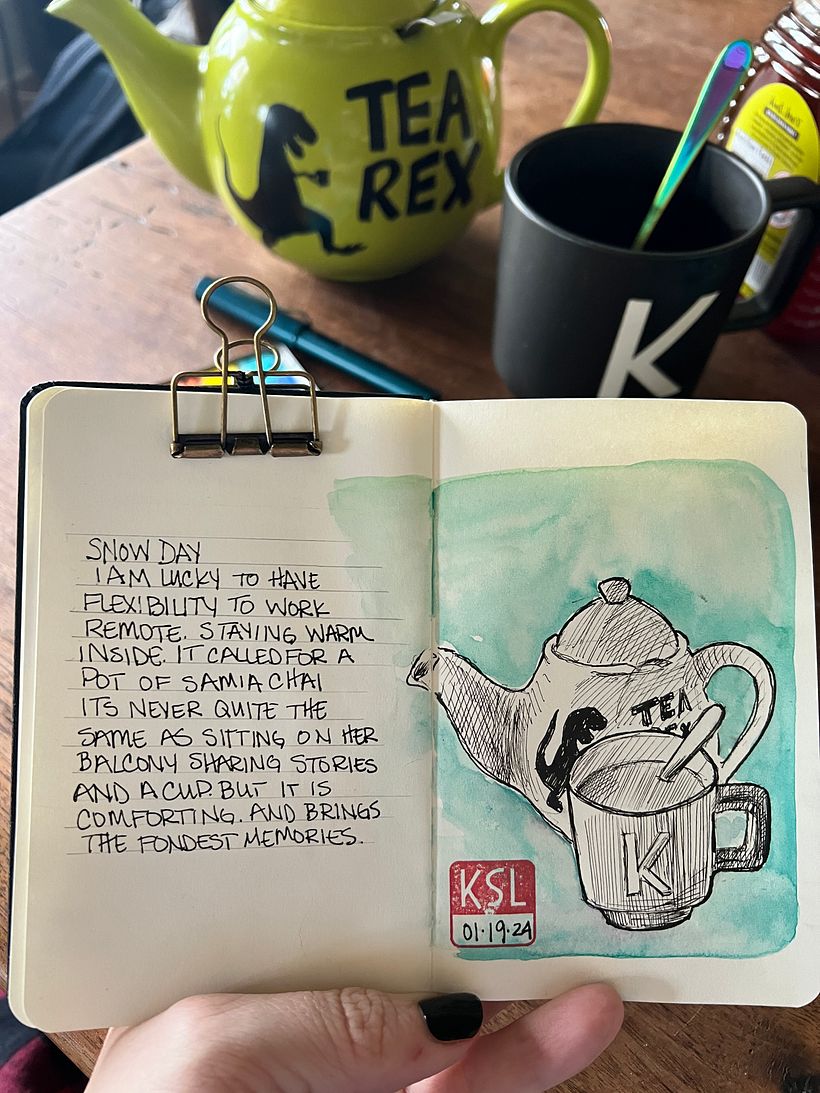 TEA
REX
K
SNOW DAY
I AM LUCKY TO HAVE
FLEXIBILITY TO WORK
REMOTE. STAYING WARM
INSIDE. IT CALLED FOR A
POT OF SAMIA CHAI
ITS NEVER QUITE THE
SAME AS SITTING ON HER
BALCONY SHARING STORIES
AND A CUP. BUT IT IS
COMFORTING. AND BRINGS
THE FONDEST MEMORIES.
TEA
REX
K
KSL
01·19·24